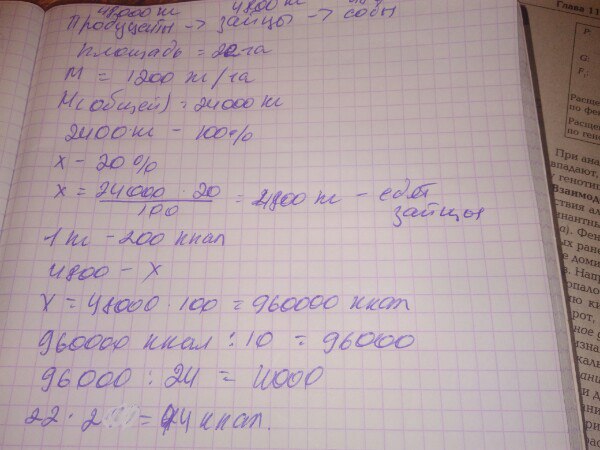 48000 кг 4800 кг
Продуценты → зайцы → совы
площадь = 20 га
М = 1200 кг/га
М(общей) = 24000 кг
2400 кг - 100%
х - 20%
х = 24000 · 20 / 100 = 4800 кг - едят зайцы
1 кг - 200 ккал
4800 - х
х = 48000 · 100 = 960000 ккал
960000 ккал : 10 = 96000
96000 : 24 = 4000
22 · 2 = 44 ккал.
Глава 11
P:
G:
F₁:
Расще
по фе
Расще
по ген
При ана
впадают,
у генотиг
Взаимод
ствия ал
инантны
а). Фен
ых ране
е доми
з. Напр
опало
ию ки
рот,